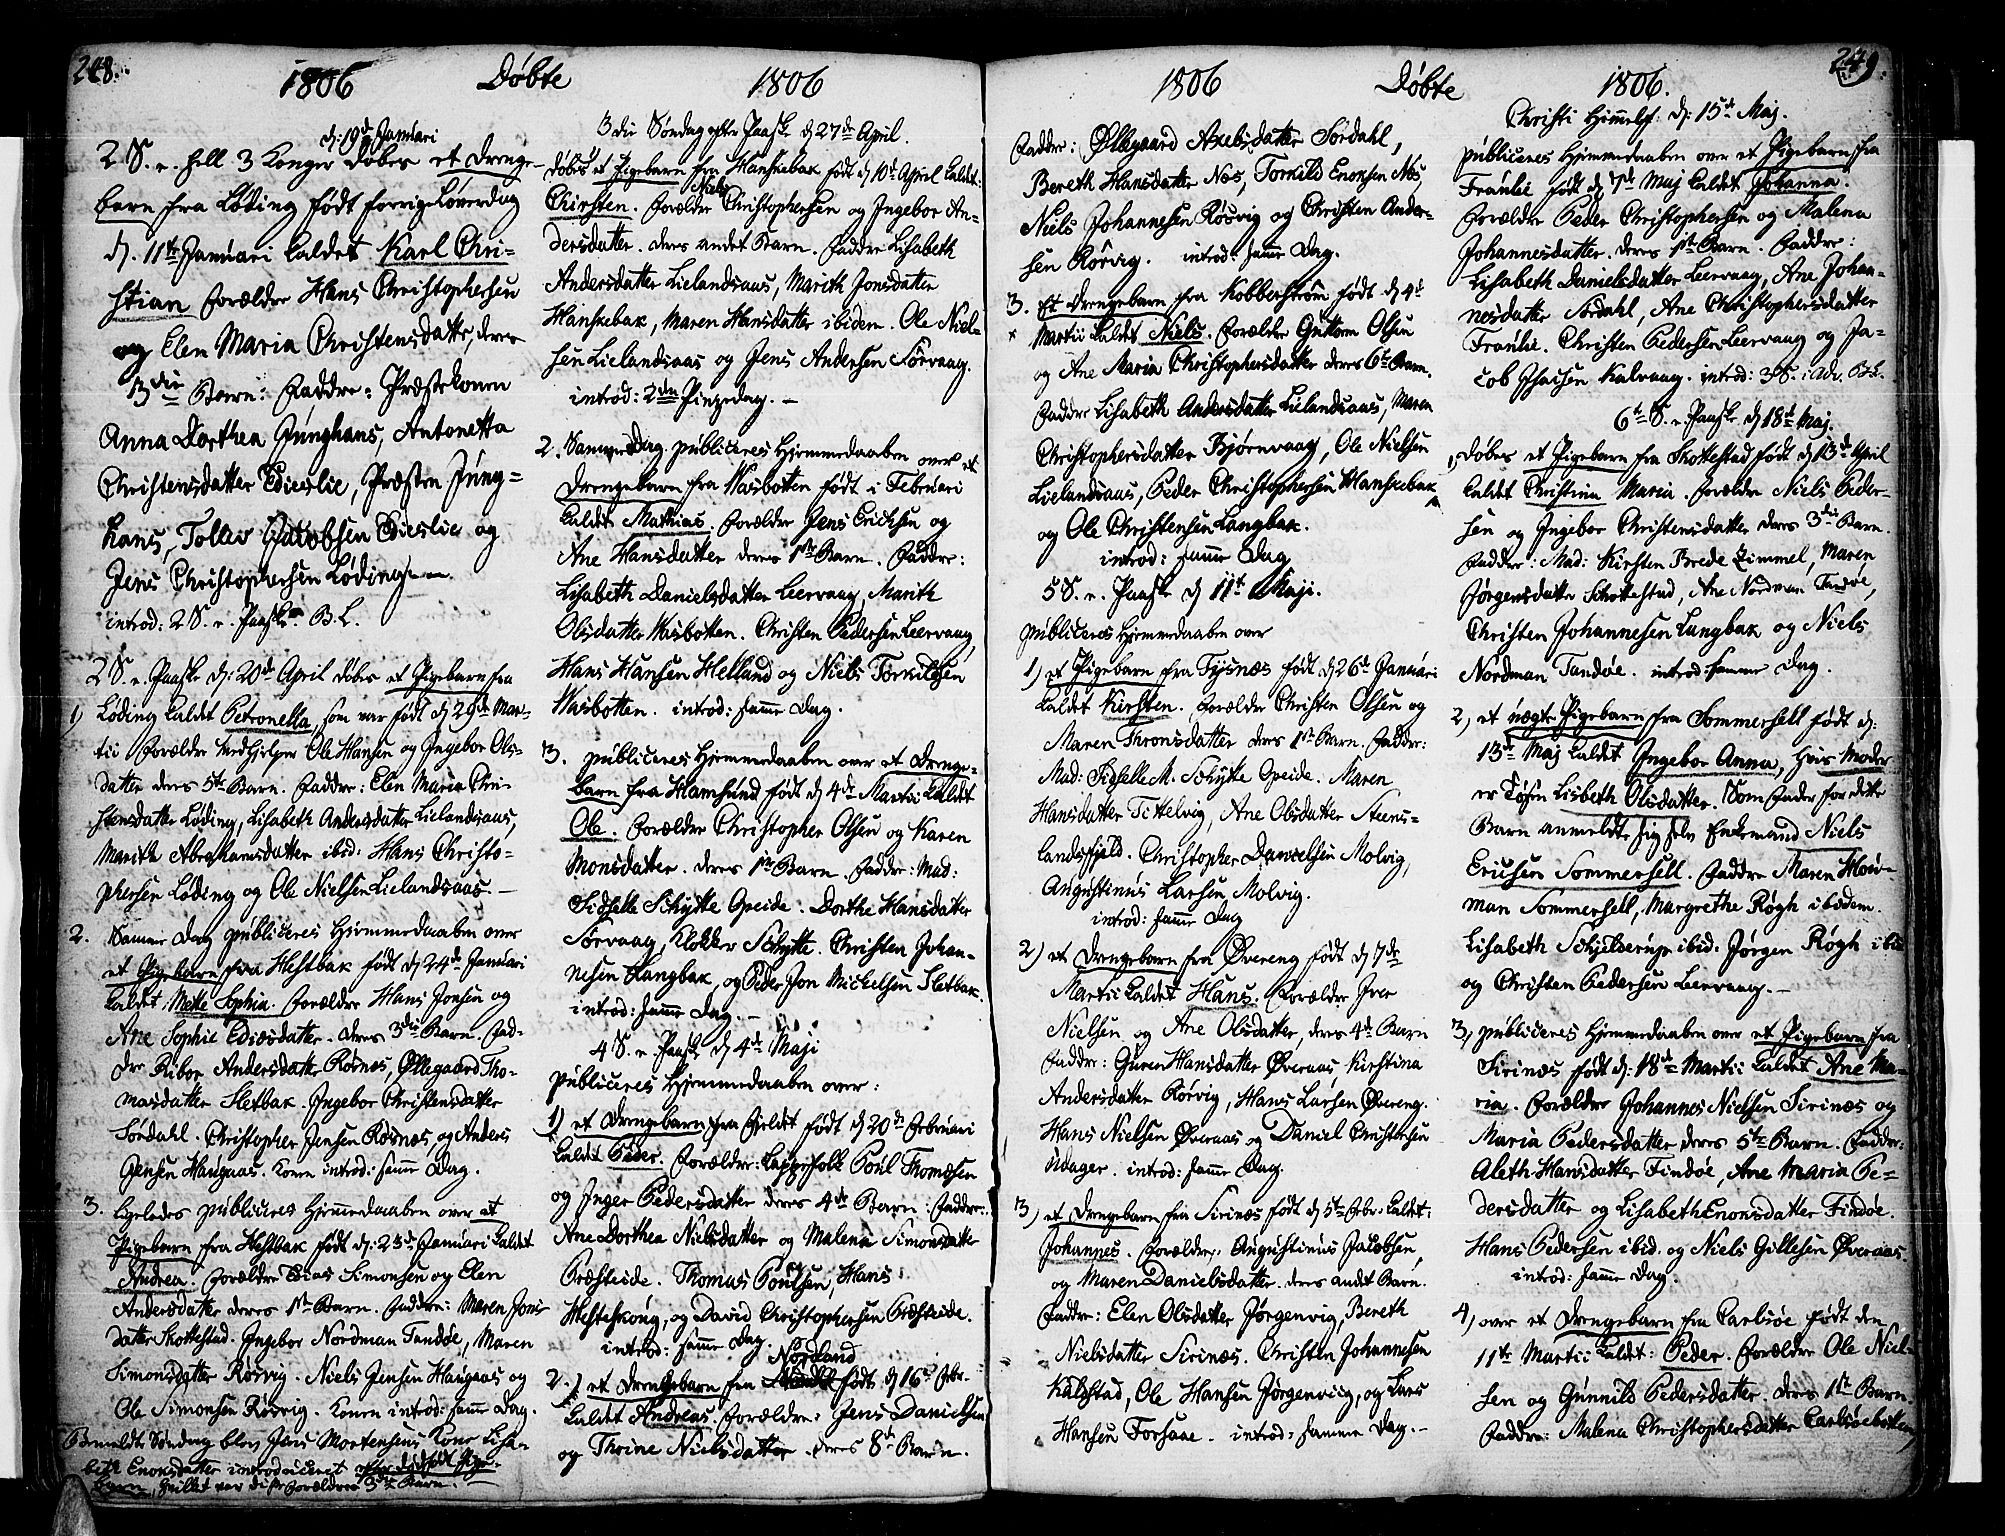 248.
1806 Døbte 1806
d: 19de Januari
2 S. e. Hell. 3 Konger døbes et Drenge-
barn fra Løding født forrige Løverdag
d. 11te Januari kaldet Karl Chri-
stian Forældre Hans Christophersen
og Elen Maria Christensdatter, deres
3die Barn: Faddre: Præstekonen
Anna Dorthea Junghans, Antonetta
Christensdatter Edieslie, Præsten Jung-
hans, Tollev Jacobsen Edieslie og
Jens Christophersen Løding.
introd: 2 S. e. Paaske. B. L.
2 S. e. Paaske d: 20de April døbes et Pigebarn fra
1) Løding kaldet Petronella, som var født d 29de Mar-
tii Forældre Medhjelper Ole Hansen og Ingebor Ols-
datter deres 5te Barn. Faddre: Elen Maria Chri-
stensdatter Løding, Lisabeth Andersdatter Lielandsaas,
Marith Abrahamsdatter ibid: Hans Christo-
phersen Løding og Ole Nielsen Lielandsaas
2. Samme Dag publiceres Hjemmedaaben over
et Pigebarn fra Hestbak født d 24de Januari
kaldet Mette Sophia. Forældre Hans Jonsen og
Ane Sophie Ediasdatter. deres 3die Barn. Fad-
dre Ribor Andersdatter Røsnes, Øllegaard Tho-
masdatter Sletbak. Ingebor Christensdatter
Sørdahl. Christopher Jensen Røsnæs, og Anders
Jensen Haugaas. Konen introd: samme Dag.
3. Ligeledes publiceres Hjemmedaaben over et
Pigebarn fra Hestbak født d: 23de Januari kaldet
Andrea. Forældre Edias Simonsen og Elen
Andersdatter deres 1ste Barn. Faddre: Maren Jons-
datter Skottestad. Ingebor Nordman Tandøe, Maren
Simonsdatter Røsvig. Niels Jensen Haugaas og
Ole Simonsen Røsvig. Konen introd: samme Dag.
Bemeldte Søndag blev Jens Mortensens Kone Lisa-
beth Enoksdatter introduceret efter dødfødt Pige-
barn, hvilket var disse Forældres 3de Barn.
3die Søndag efter Paaske d 27de April.
døbes et Pigebarn fra Hanskebak født d 10de April kaldet:
Chirsten. Forældre Niels Christophersen og Ingebor An-
dersdatter. deres andet Barn. Faddre Lisabeth
Andersdatter Lielandsaas, Marith Jonsdatter
Hanskebak, Maren Hansdatter ibidem. Ole Niel-
sen Lielandsaas og Jens Andersen Sørvaag.
introd: 2den Pingsedag.
2. Samme Dag publiceres Hjemmedaaben over et
Drengebarn fra Wasbotten født i Februari
kaldet Mathias. Forældre Jens Erichsen og
Ane Hansdatter deres 1ste Barn. Faddre:
Lisabeth Danielsdatter Leervaag, Marith
Olsdatter Wasbotten. Christen Pedersen Leervaag,
Hans Hansen Helland og Niels Torkildsen
Wasbotten. introd: samme Dag.
3. publiceres Hjemmedaaben over et Drenge-
barn fra Hamsund født d 4de Martii kaldet
Ole. Forældre Christopher Olsen og Karen
Monsdatter. deres 1ste Barn. Faddre: Mad:
Sidselle Schytte Opeide. Dorthe Hansdatter
Sørvaag, Klokker Schytte. Christen Johan-
nesen Langbak, og Peder Jon Mickelsen Sletbak.
introd: samme Dag.
4 S. e. Paaske d 4de Maji
publiceres Hjemmedaaben over:
1) et Drengebarn fra Fieldet født d 20de Februari
kaldet Peder. Forældre: Lappefolk Poul Thomesen
og Inger Pedersdatter deres 4de Barn. Faddre:
Ane Dorthea Nielsdatter og Malena Simonsdatter
Præsteide. Thomas Poulsen, Hans
og David Christophersen Præsteide.
introd: samme Dag.
2.) et Drengebarn fra Nordland født d 16de Febr.
kaldet Andreas. Forældre: Jens Danielsen
og Thrine Nielsdatter. deres 8de Barn.
249.
1806 Døbte 1806.
Faddre: Øllegaard Axelsdatter Sørdahl,
Bereth Hansdatter Næs, Torkild Enoksen Næs,
Niels Johannesen Røsvig og Christen Ander-
sen Rørvig. introd: samme Dag.
3. Et Drengebarn fra Kobberstrøm født d 4de
Martii kaldet Niels. Forældre Guttorm Olsen
og Ane Maria Christophersdatter deres 6te Barn.
Faddre Lisabeth Andersdatter Lielandsaas, Maren
Christophersdatter Bjørnvaag, Ole Nielsen
Lielandsaas, Peder Christophersen Hanskebak
og Ole Christensen Langbak.
introd: samme Dag
5 S. e. Paaske d 11te Maji.
publiceres Hjemmedaaben over
1) et Pigebarn fra Tysnæs født d 26de Januari
kaldet Kirsten. Forældre Christen Olsen og
Maren Thronsdatter deres 1ste Barn. Faddre:
Mad: Sidselle M. Schytte Opeide. Maren
Hansdatter Tittelvig, Ane Olsdatter Steens-
landsfjeld. Christopher Danielsen Molvig,
Augustinus Larsen Molvig.
introd: samme Dag
2) et Drengebarn fra Øvereng født d 7de
Martii kaldet Hans. Forældre Iver
Nielsen og Ane Olsdatter, deres 4de Barn
Faddre: Guren Hansdatter Øveraas Kirstina
Andersdatter Rørvig, Hans Larsen Øvereng.
Hans Nielsen Øveraas og Daniel Christensen
Udager. introd: samme Dag.
3) et Drengebarn fra Sirinæs født d 5te Febr: kaldet:
Johannes. Forældre: Augustinus Jacobsen,
og Maren Danielsdatter. deres andet Barn.
Faddre: Elen Olsdatter Jørgenvig, Bereth
Nielsdatter Sirinæs. Christen Johannesen
Kalvstad, Ole Hansen Jørgenviig, og Lars
Hansen Forsaae. introd: samme Dag.
Christi Himmelf: d: 15de Maj.
publiceres Hjemmedaaben over et Pigebarn fra
Fraulie født d 7de Maj kaldet Johanna.
Forældre Peder Christophersen og Malena
Johannesdatter. deres 1ste Barn. Faddre:
Lisabeth Danielsdatter Leervaag, Ane Johan-
nesdatter Sørdahl, Ane Christophersdatter
Fraulie. Christen Pedersen Leervaag og Ja-
cob Isaksen Kalvaag. introd: 3 S. i Adv. B. L.
6te S. e. Paaske d 18de Maj.
1, Døbes et Pigebarn fra Skottestad født d 13de April
kaldet Christina Maria. Forældre Niels Peder-
sen og Ingebor Christensdatter deres 3die Barn.
Faddre: Mad: Kirsten Brede Zimmel, Maren
Jørgensdatter Schottestad, Ane Nordman Tandøe,
Christen Johannesen Langbak og Niels
Nordman Tandøe. introd samme Dag.
2, et uægte Pigebarn fra Sommersell født d:
13de Maj kaldet Ingebor Anna, hvis Moder
er Tøsen Lisbeth Olsdatter. Som Fader for dette
Barn anmeldte sig selv Enkemand Niels
Ericksen Sommersell. Faddre Maren
man Sommersell, Margrethe Røgh ibidem.
Lisabeth Schjelderup ibid: Jørgen Røgh ibid
og Christen Pedersen Leervaag.
3, publiceres Hjemmedaaben over et Pigebarn fra
Sirinæs født d: 18de Martii kaldet Ane Ma-
ria. Forældre Johannes Nielsen Sirinæs og
Maria Pedersdatter deres 5te Barn. Faddre:
Aleth Hansdatter Findøe, Ane Maria Pe-
dersdatter og Lisabeth Enoksdatter Findøe.
Hans Pedersen ibid. og Niels Gillesen Øveraas.
introd: samme Dag.
4, over et Drengebarn fra Carlsøe født den
11te Martii kaldet: Peder. Forældre Ole Niel-
sen og Gunnild Pedersdatter, deres 1ste Barn.
Faddre: Malena Christophersdatter Carlsøebotten,